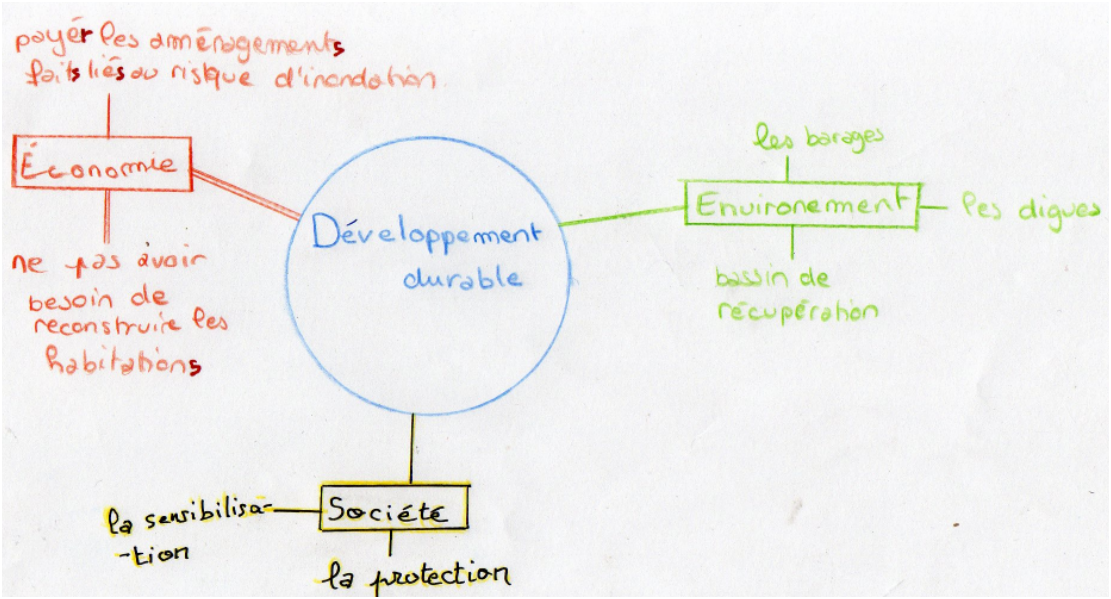 payér les aménagements
faits liés au risque d'inondation
Économie
ne pas avoir
besoin de
reconstruire les
habitations
Développement
durable
les barages
Environement
les digues
bassin de
récupération
Société
la sensibilisa-
-tion
la protection